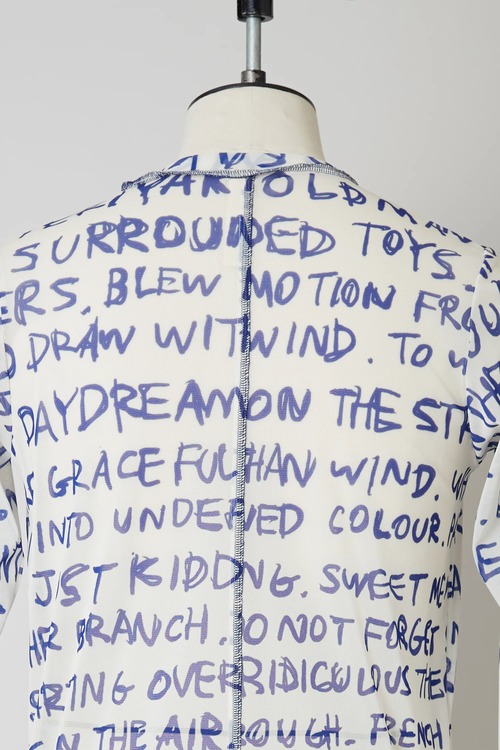 OLD MAN
SURROUDED TOYS
ERS. BLEW MOTION FROU
DRAW WITWIND. TO
DAYDREAMON THE STA
GRACE FULHAN WIND. WH
INTO UNDEFIED COLOUR.
JUST KIDDNG. SWEET
HER BRANCH. O NOT FORGET
RING OVERRIDICULOUS THE
N THE AIR OUGH. FRENCH